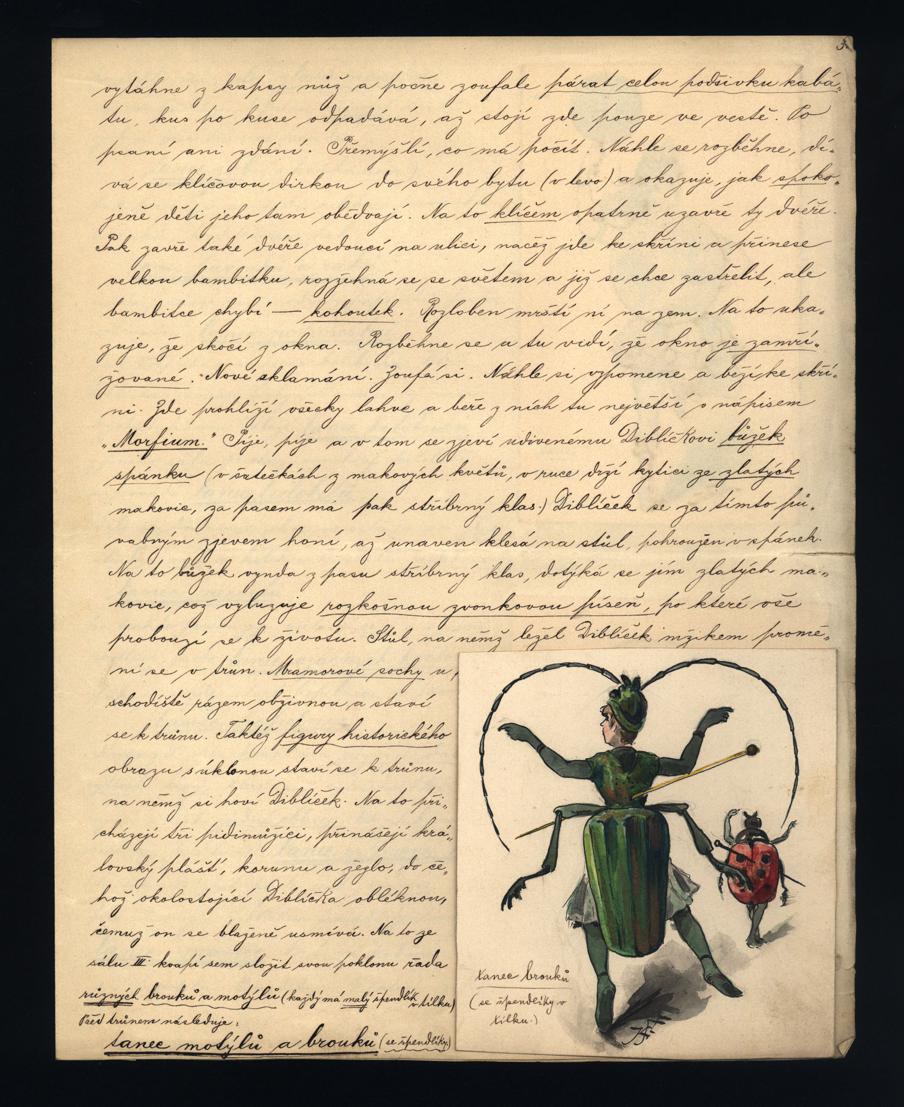 3.
vytáhne z kapsy nůž a počne zoufale párat celou podšívku kabá-
tu, kus po kuse odpadává, až stojí zde pouze ve vestě. Po
psaní ani zdání. Přemýšlí, co má počít. Náhle se rozběhne, dí-
vá se klíčovou dirkou do svého bytu (v levo) a okazuje, jak spoko-
jeně děti jeho tam obědvají. Na to klíčem opatrně uzavře ty dvéře.
Pak zavře také dvéře vedoucí na ulici, načež jde ke skříni a přinese
velkou bambitku, rozžehná se se světem a již se chce zastřelit, ale
bambitce chybí — kohoutek. Rozloben mrští ní na zem. Na to uka-
zuje, že skočí z okna. Rozběhne se a tu vidí, že okno je zamří-
žované. Nové sklamání. Zoufá si. Náhle si vzpomene a běží ke skří-
ni. Zde prohlíží všecky lahve a beře z nich tu největší s nápisem
"Morfium." Pije, pije a v tom se zjeví udivenému Diblíčkovi bůžek
spánku (v šatečkách z makových květů, v ruce drží kytici ze zlatých
makovic, za pasem má pak stříbrný klas.) Diblíček se za tímto pů-
vabným zjevem honí, až unaven klesá na stůl, pohroužen v spánek.
Na to bůžek vynda z pasu stříbrný klas, dotýká se jím zlatých ma-
kovic, což vyluzuje rozkošnou zvonkovou píseň, po které vše
probouzí se k životu. Stůl, na němž ležel Diblíček mžikem promě-
ní se v trůn. Mramorové sochy u
schodiště rázem obživnou a staví
se k trůnu. Taktéž figury historického
obrazu s úklonou staví se k trůnu,
na němž si hoví Diblíček. Na to při-
cházejí tři pidimužíci, přinášejí krá-
lovský plášť, korunu a žezlo, do če-
hož okolostojící Diblíčka obléknou,
čemuž on se blaženě usmívá. Na to ze
sálu III. kvapí sem složit svou poklonu řada
různých brouků a motýlů (každý má malý špendlík v tílku)
Před trůnem následuje:
tanec motýlů a brouků (se špendlíky)
tanec brouků
(se špendlíky v
tílku.)